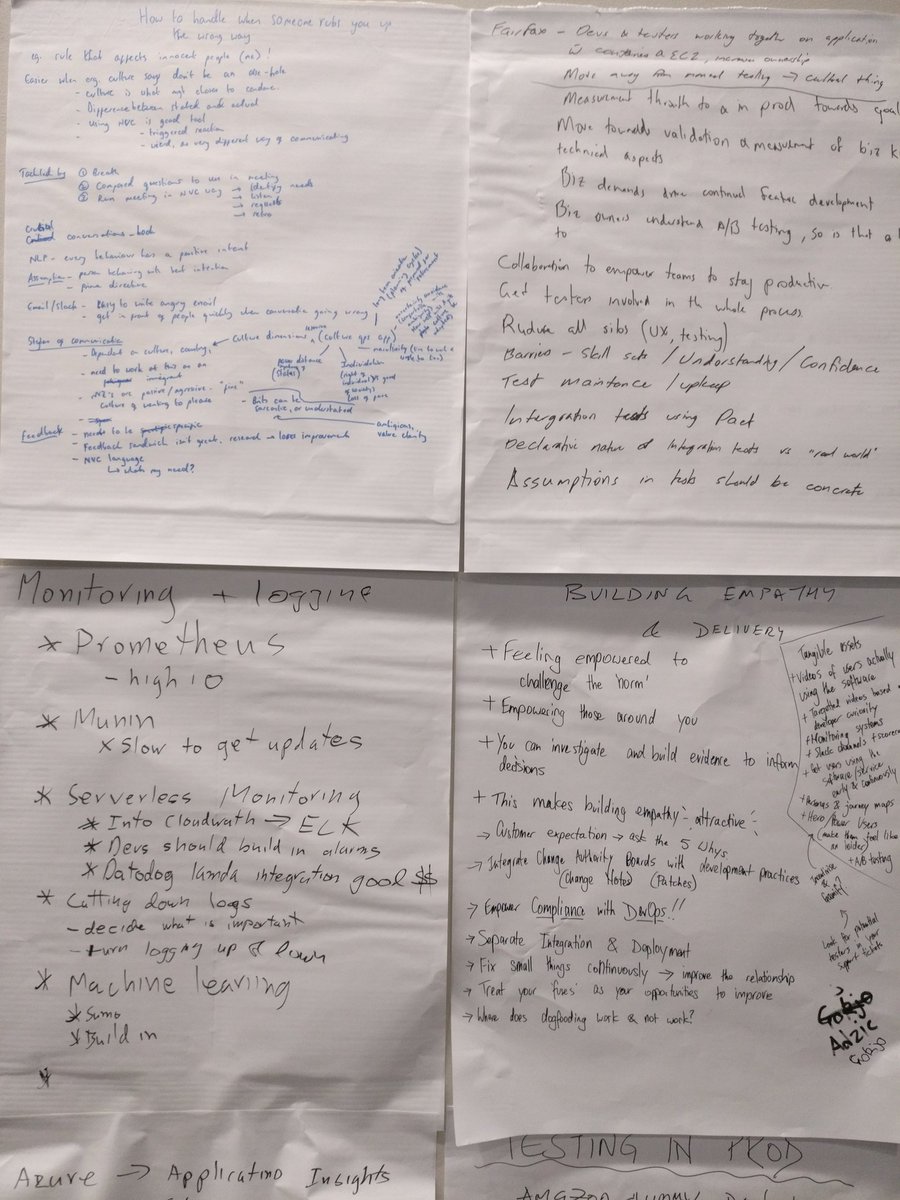 How to handle when someone rubs you up
the wrong way
eg. rule that affects innocent people (me)!
Easier when org. culture says don't be an
- culture is what
- Difference between stated and actual
- using NVC is good tool
- triggered reaction
- weird, as very different way of communicating
Tackled by ① Break
② Composed questions to use in meeting
③ Run meeting in NVC way → Identify needs
→ listen
→ requests
→ retro
Crucial
conversations - book
NLP - every behaviour has a positive intent
Assumption - person behaving with best intention
- prime directive
Email/Slack - Easy to write angry email
- get in front of people quickly when conversation going wrong
Styles of communication
- Dependant on culture, country,
- need to work at this as an
immigrant
- NZ's are passive/agressive - "fine"
culture of wanting to please
Culture dimensions (Culture gps app)
power distance
(status)?
Individualism
(right of
individual vs good
of society)
loss of face
- Brits can be
sarcastic, or understated
ambigious,
value clarity
Feedback - needs to be specific
- Feedback sandwich isn't great, research → loses improvement
- NVC language
↳ whats my need?
Fairfax - Devs & testers working together on application
in containers & EC2, increase ownership
Move away from manual testing → cultural thing
Measurement through to a in prod towards goal
Move towards validation & measurement of biz k
technical aspects
Biz demands continual feature development
Biz owners understand A/B testing, so is that a
to
Collaboration to empower teams to stay productive
Get testers involved in th whole process.
Reduce all silos (UX, testing)
Barriers - Skill sets / Understanding / Confidence
Test maintance / upkeep
Intergration tests using Pact
Declarative nature of Integration tests vs "real world"
Assumptions in tests should be concrete
Monitoring + logging
* Prometheus
- high IO
* Munin
x slow to get updates
* Serverless Monitoring
* Into Cloudwath → ELK
* Devs should build in alarms
* Datodog lamda integration good $$
* Cutting down logs
- decide what is important
- turn logging up & down
* Machine learing
* Sumo
* Build in
BUILDING EMPATHY
& DELIVERY
+ Feeling empowered to
challenge the 'norm'
+ Empowering those around you
+ You can investigate and build evidence to inform
decisions
+ This makes building empathy 'attractive'
→ Customer expectation → ask the 5 Whys
→ Integrate Change Authority Boards with development practices
(Change Notes) (Patches)
→ Empower Compliance with DevOps!!
→ Separate Integration & Deployment
→ Fix small things continuously → improve the relationship
→ Treat your 'fires' as your opportunities to improve
→ Where does dogfooding work & not work?
Tangible assets
+ Videos of users actually
using the software
+ Targetted videos based
developer curiosity
+ Monitoring systems
+ Slack channels + screen
+ Get users using the
software/service
early & continuously
+ Personas & journey maps
+ Hero/Power Users
(make them feel like
an insider)
+ A/B testing
Incentivise
&
Gamify?
Look for potential
testers in your
support tickets
Gojko
Adzic
Gojko
Azure → Applicatino Insights
TESTING IN PROD